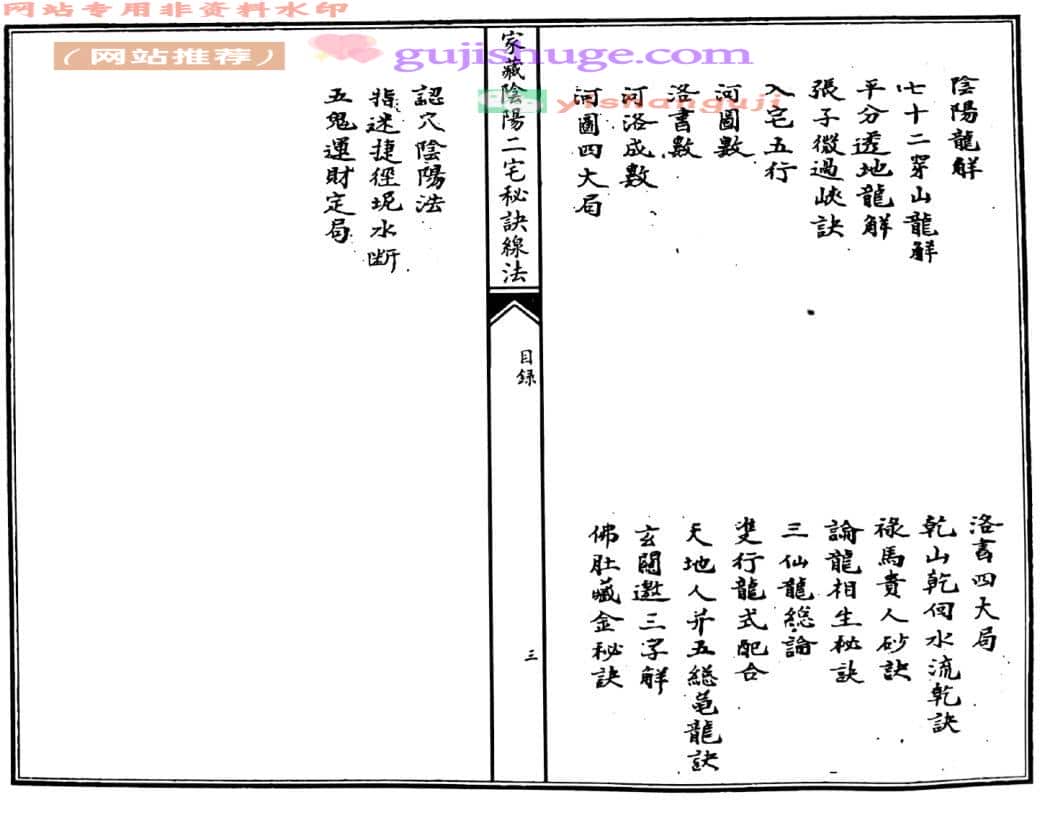 网站专用非资料水印
(网站推荐)
gujishuge.com
yishanguji
陰陽龍解
七十二穿山龍解
平分透地龍解
張子微過峽訣
入宅五行
河圖數
洛書數
河洛成數
河圖四大局
洛書四大局
乾山乾向水流乾訣
祿馬貴人砂訣
論龍相生秘訣
三仙龍總論
雙行龍式配合
天地人并五總龜龍訣
玄關邀三字解
佛肚藏金秘訣
家藏陰陽二宅秘訣線法
目錄
三
認穴陰陽法
指迷捷徑坭水斷
五鬼運財定局